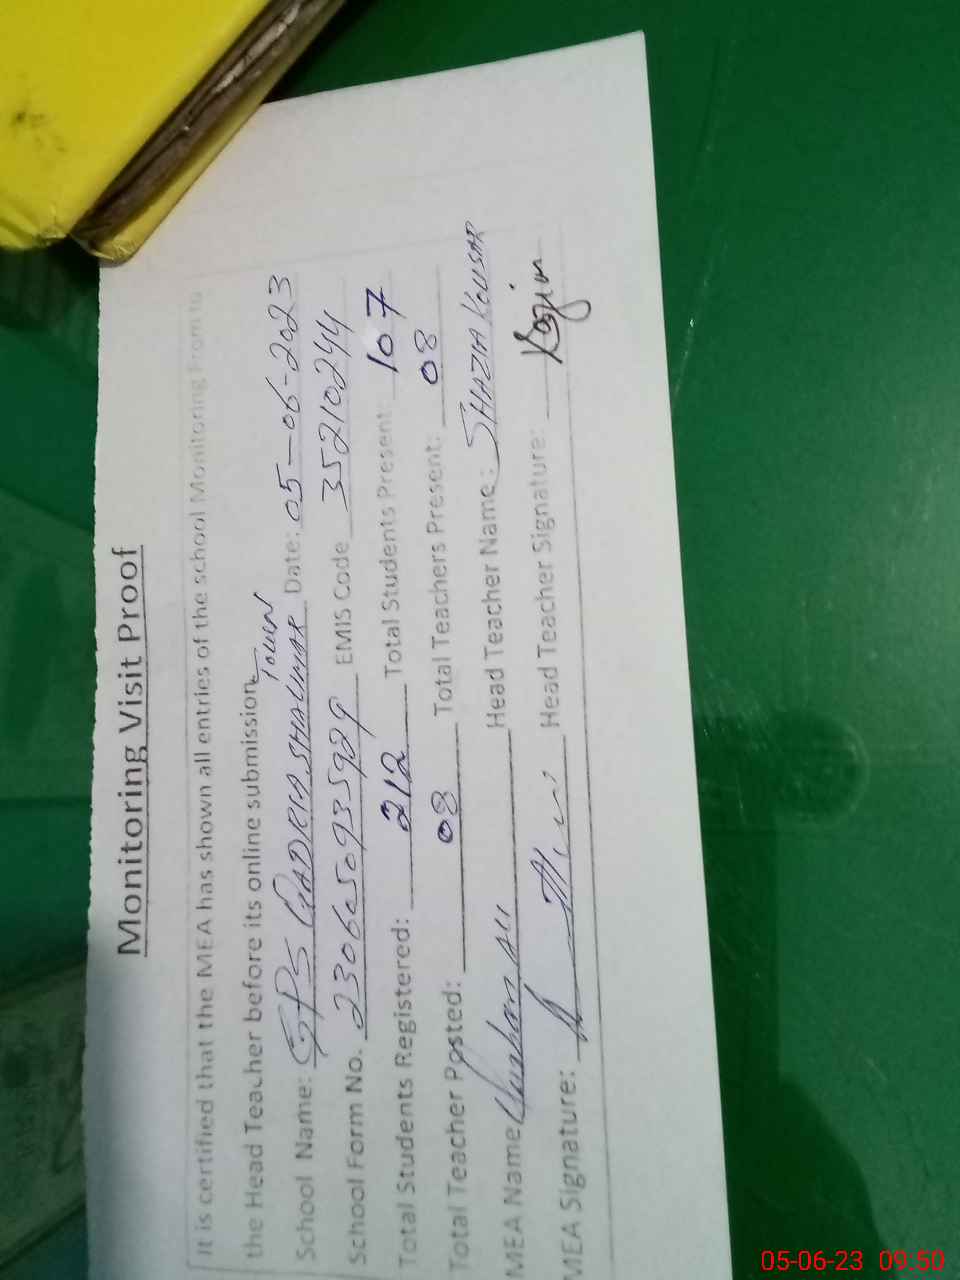 Monitoring Visit Proof
It is certified that the MEA has shown all entries of the school Monitoring From to
the Head Teacher before its online submission.
School Name: GPS QADRIA SHALIMAR Town Date: 05-06-2023
School Form No. 2306050935929 EMIS Code 35210244
Total Students Registered: 212 Total Students Present: 107
Total Teacher Posted: 08 Total Teachers Present: 08
MEA Name Ali Head Teacher Name: SHAZIA KOUSAR
MEA Signature: Head Teacher Signature:
05-06-23 09.50